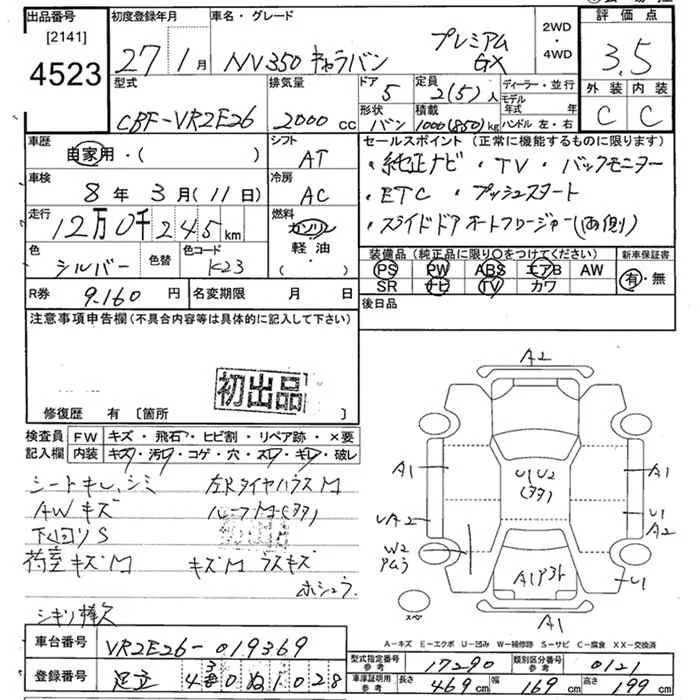 出品番号 初度登録年月 車名・グレード 2WD・4WD 評価点
[2141]
4523
27年1月 NV350 キャラバン プレミアムGX 3.5
型式 排気量 ドア 定員 ディーラー・並行 外装 内装
CBF-VR2E26 2000cc 5 2(5)人 モデル年式 年 C C
形状 積載 ハンドル 左・右
バン 1000(850)kg
車歴 自家用・( ) シフト AT
車検 8年3月(11日) 冷房 AC
走行 12万0千245km 燃料 ガソリン 軽油 ( )
色 シルバー 色替 色コード K23
R券 9.160円 名変期限 月 日
セールスポイント(正常に機能するものに限ります)
・純正ナビ ・TV ・バックモニター
・ETC ・プッシュスタート
・スライドドアオートクロージャー(両側)
装備品(純正品に限り○をつけてください) 新車保証書
PS PW ABS エアB AW 有・無
SR ナビ TV カワ
後日品
注意事項申告欄(不具合内容等は具体的に記入して下さい)
初出品
修復歴 有 [箇所 ]
検査員記入欄 FW キズ・飛石・ヒビ割・リペア跡・×要
内装 キズ・汚レ・コゲ・穴・スレ・キレ・破レ
シートキレ、シミ 左Rタイヤハウス M
AWキズ ルーフM(多)
下回りS
荷室キズM キズM ラスキズ
ホシュウ
シキリ棒欠
A2
A1 U1U2(多) A1
UA2 U1 A2
W2 PM
A1P
U1
スペア
A1
A−キズ E−エクボ U−凹み W−補修跡 S−サビ C−腐食 XX−交換済
車台番号 VR2E26-019369
登録番号 足立
型式指定番号 参考 17290 類別区分番号 参考 0121
車庫証明用 参考 長さ 469cm 幅 169cm 高さ 199cm